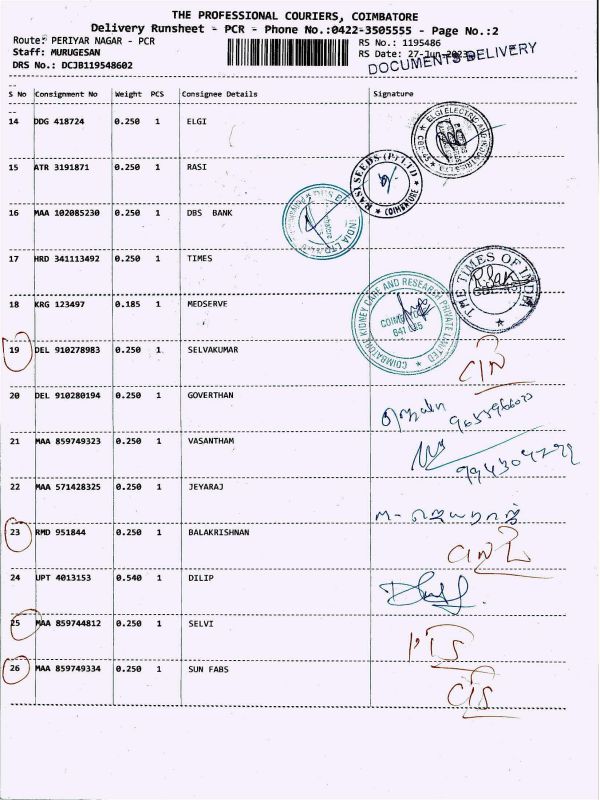 THE PROFESSIONAL COURIERS, COIMBATORE
Delivery Runsheet - PCR - Phone No.:0422-3505555 - Page No.:2
Route: PERIYAR NAGAR - PCR RS No.: 1195486
Staff: MURUGESAN RS Date: 27-Jun-2023
DRS No.: DCJB119548602 DOCUMENTS DELIVERY
S No Consignment No Weight PCS Consignee Details Signature
14 DDG 418724 0.250 1 ELGI
15 ATR 3191871 0.250 1 RASI
RASI SEEDS (P) LTD * COIMBATORE *
16 MAA 102085230 0.250 1 DBS BANK
17 HRD 341113492 0.250 1 TIMES
THE TIMES OF INDIA
18 KRG 123497 0.185 1 MEDSERVE
COIMBATORE KIDNEY CARE AND RESEARCH PRIVATE LIMITED
19 DEL 910278983 0.250 1 SELVAKUMAR
20 DEL 910280194 0.250 1 GOVERTHAN
21 MAA 859749323 0.250 1 VASANTHAM
22 MAA 571428325 0.250 1 JEYARAJ
23 RMD 951844 0.250 1 BALAKRISHNAN
24 UPT 4013153 0.540 1 DILIP
25 MAA 859744812 0.250 1 SELVI
26 MAA 859749334 0.250 1 SUN FABS